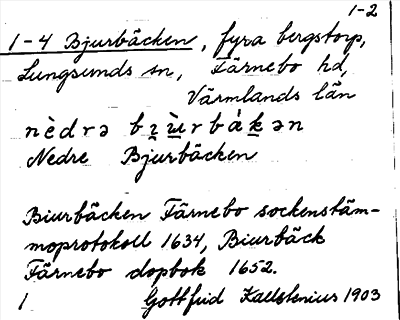 1-2
1-4 Bjurbäcken, fyra bergstorp,
Lungsunds sn, Färnebo hd,
Värmlands län
nèdrə bi̯ùrbàkən
Nedre Bjurbäcken
Biurbäcken Färnebo sockenstäm-
moprotokoll 1634, Biurbäck
Färnebo dopbok 1652.
1 Gottfrid Kallstenius 1903